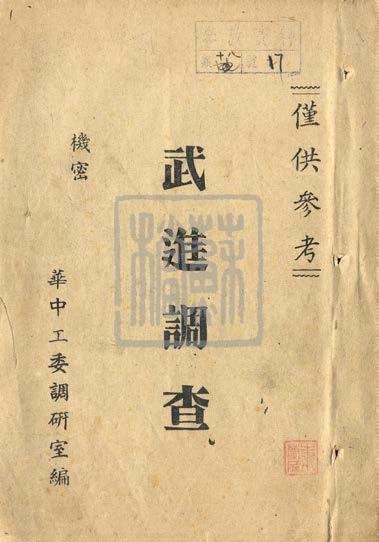 僅供參考
武進調查
機密
華中工委調研室編
十八
17